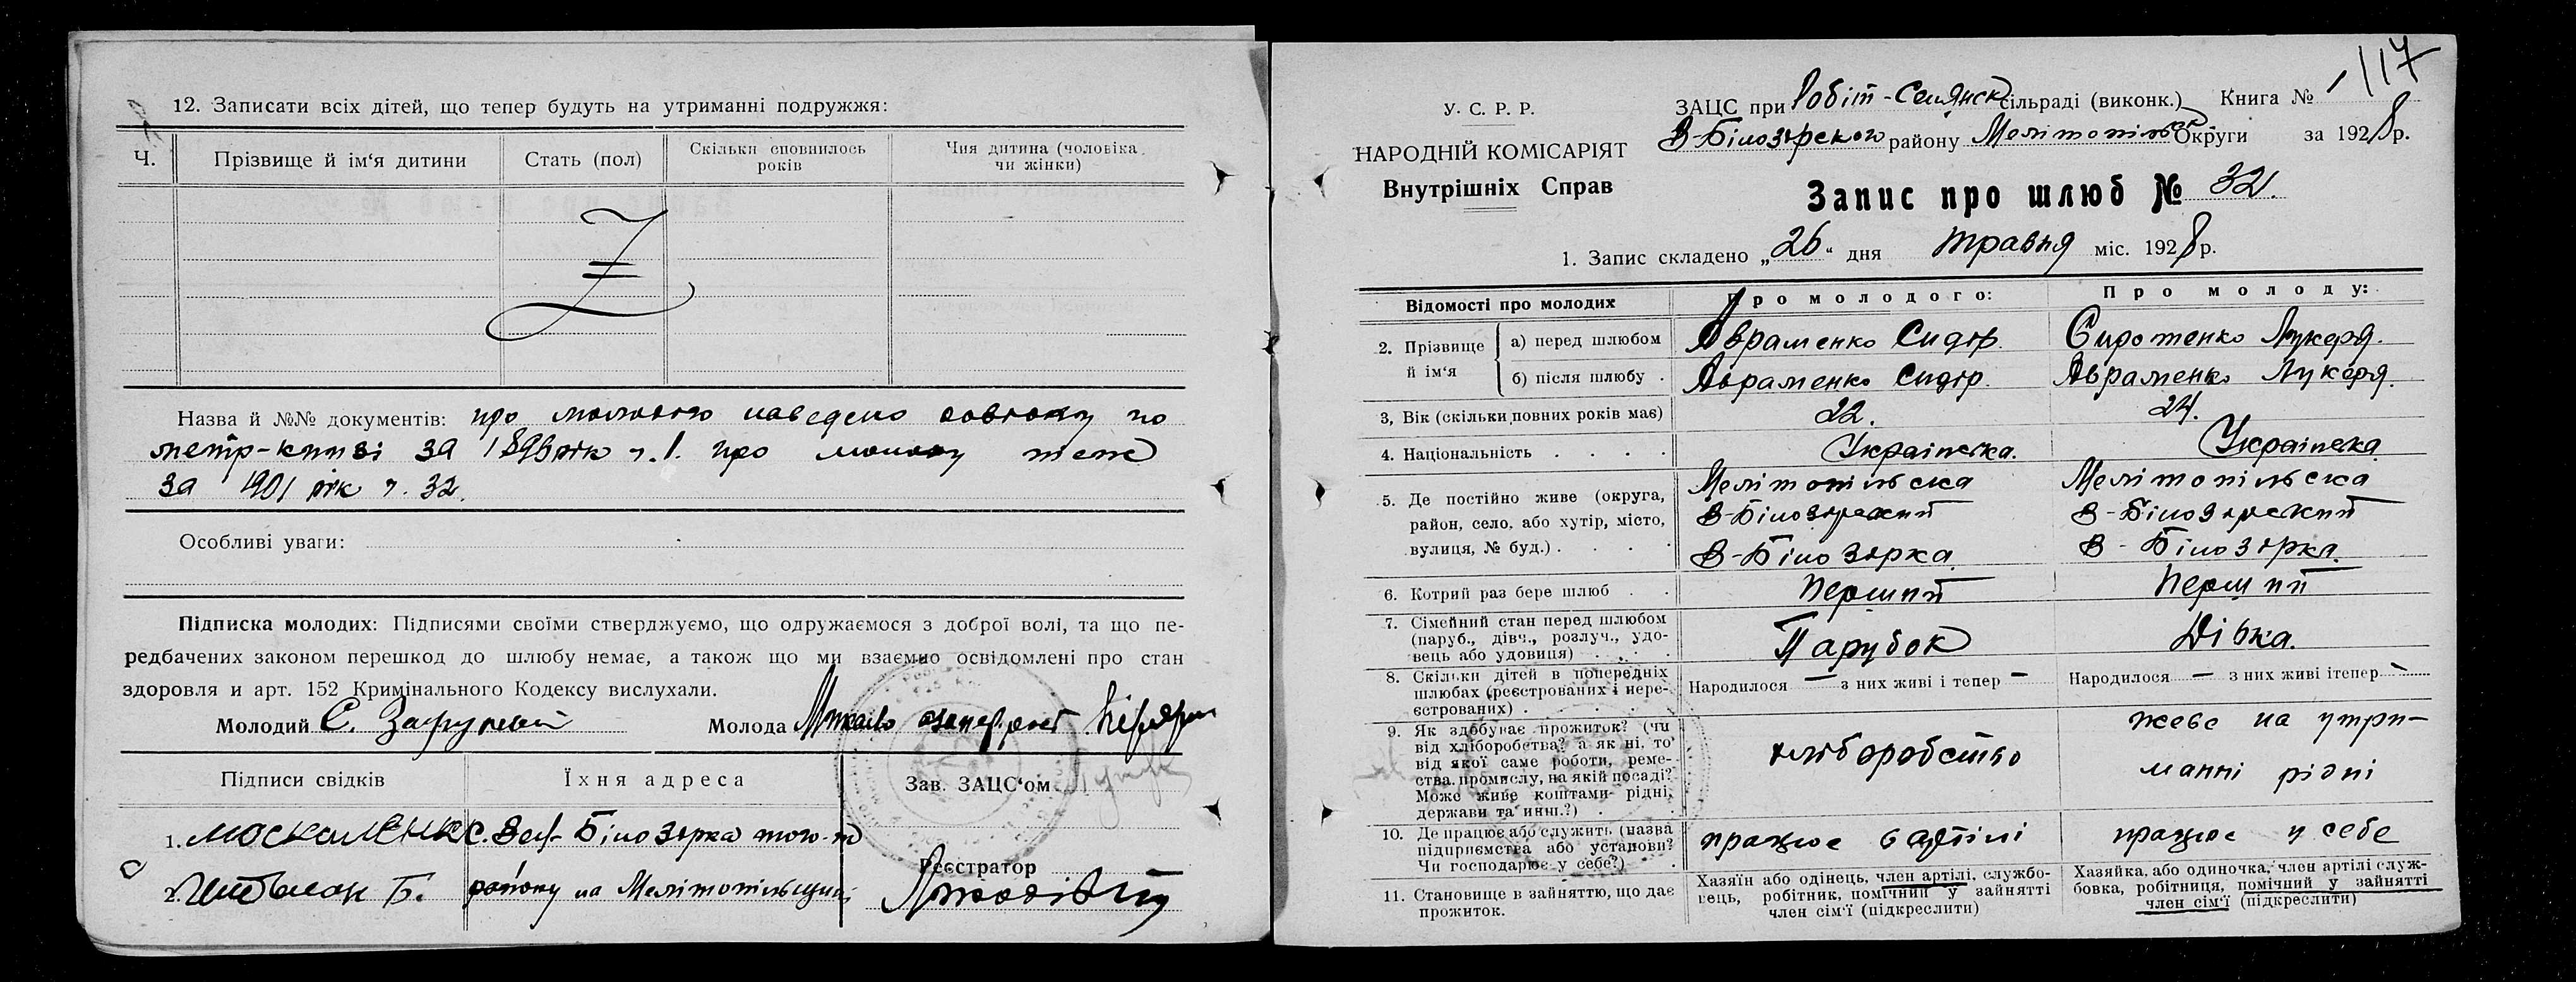 12. Записати всіх дітей, що тепер будуть на утриманні подружжя:
Ч. Прізвище й ім‘я дитини Стать (пол) Скільки сповнилось років Чия дитина (чоловіка чи жінки)
Z
Назва й №№ документів: про молодого наведено довідку по
метр-книзі за рік ч. 1. про молоду теж
за 1901 рік ч. 32.
Особливі уваги:
Підписка молодих: Підписями своїми стверджуємо, що одружаємося з доброї волі, та що пе-
редбачених законом перешкод до шлюбу немає, а також що ми взаємно освідомлені про стан
здоровля и арт. 152 Кримінального Кодексу вислухали.
Молодий С. Молода
Підписи свідків Їхня адреса Зав. ЗАЦС‘ом
1. Москаленко С. Вел-Білозірка того-ж
Реєстратор
2. Б. району на Мелітопільщині
У. С. Р. Р.
НАРОДНІЙ КОМІСАРІЯТ
Внутрішніх Справ
117
ЗАЦС при Робіт-Селянск сільраді (виконк.) Книга № 1
В-Білозірского району Мелітопільск Округи за 1928 р.
Запис про шлюб № 32.
1. Запис складено „26“ дня травня міс. 1928 р.
Відомості про молодих Про молодого: Про молоду:
2. Прізвище й ім‘я
а) перед шлюбом Авраменко Сидір. Сиротенко Лукеря.
б) після шлюбу Авраменко Сидір. Авраменко Лукеря.
3, Вік (скільки повних років має) 22. 24.
4. Національність Українська. Українська
5. Де постійно живе (округа, район, село, або хутір, місто, вулиця, № буд.)
Мелітопільска Мелітопільска
В-Білозірский В-Білозірский
В-Білозірка. В-Білозірка.
6. Котрий раз бере шлюб Перший Перший
7. Сімейний стан перед шлюбом (паруб., дівч., розлуч., удовець або удовиця) Парубок Дівка.
8. Скільки дітей в попередніх шлюбах (реєстрованих і нереєстрованих) Народилося — з них живі і тепер — Народилося — з них живі ітепер —
9. Як здобуває прожиток? (чи від хліборобства? а як ні, то від якої саме роботи, ремества, промислу, на якій посаді? Може живе коштами рідні, держави та инш.?) хліборобство живе на утри-
манні рідні
10. Де працює або служить (назва підприємства або установи? Чи господарює у себе?) працює в артілі працює у себе
11. Становище в зайняттю, що дає прожиток.
Хазяїн або одінець, член артілі, службовець, робітник, помічний у зайнятті член сім‘ї (підкреслити)
Хазяйка, або одиночка, член артілі службовка, робітниця, помічний у зайнятті член сім‘ї (підкреслити)